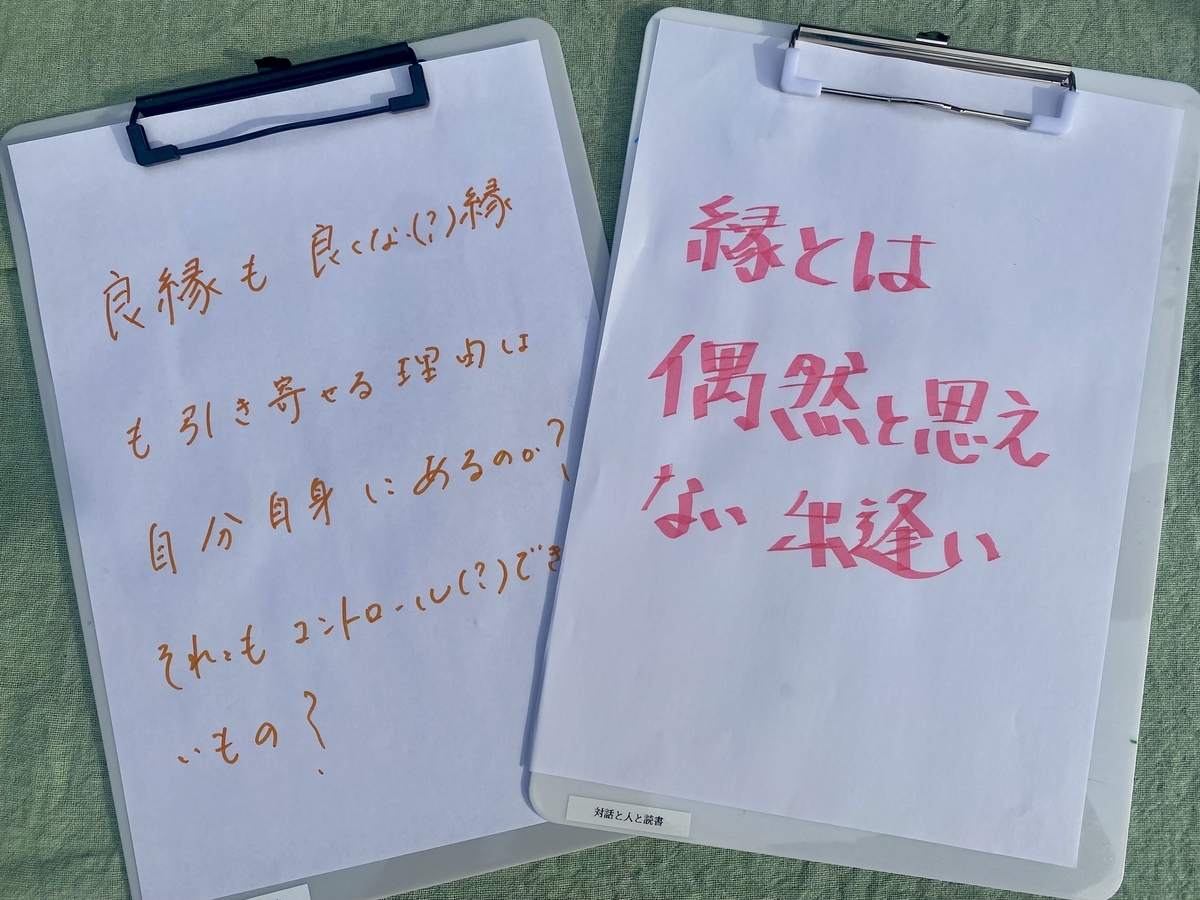 良縁も 良くない(?)縁
も引き寄せる理由は
自分自身にあるのか?
それともコントロール(?)でき
いもの?
縁とは
偶然と思え
ない出逢い
対話と人と読書